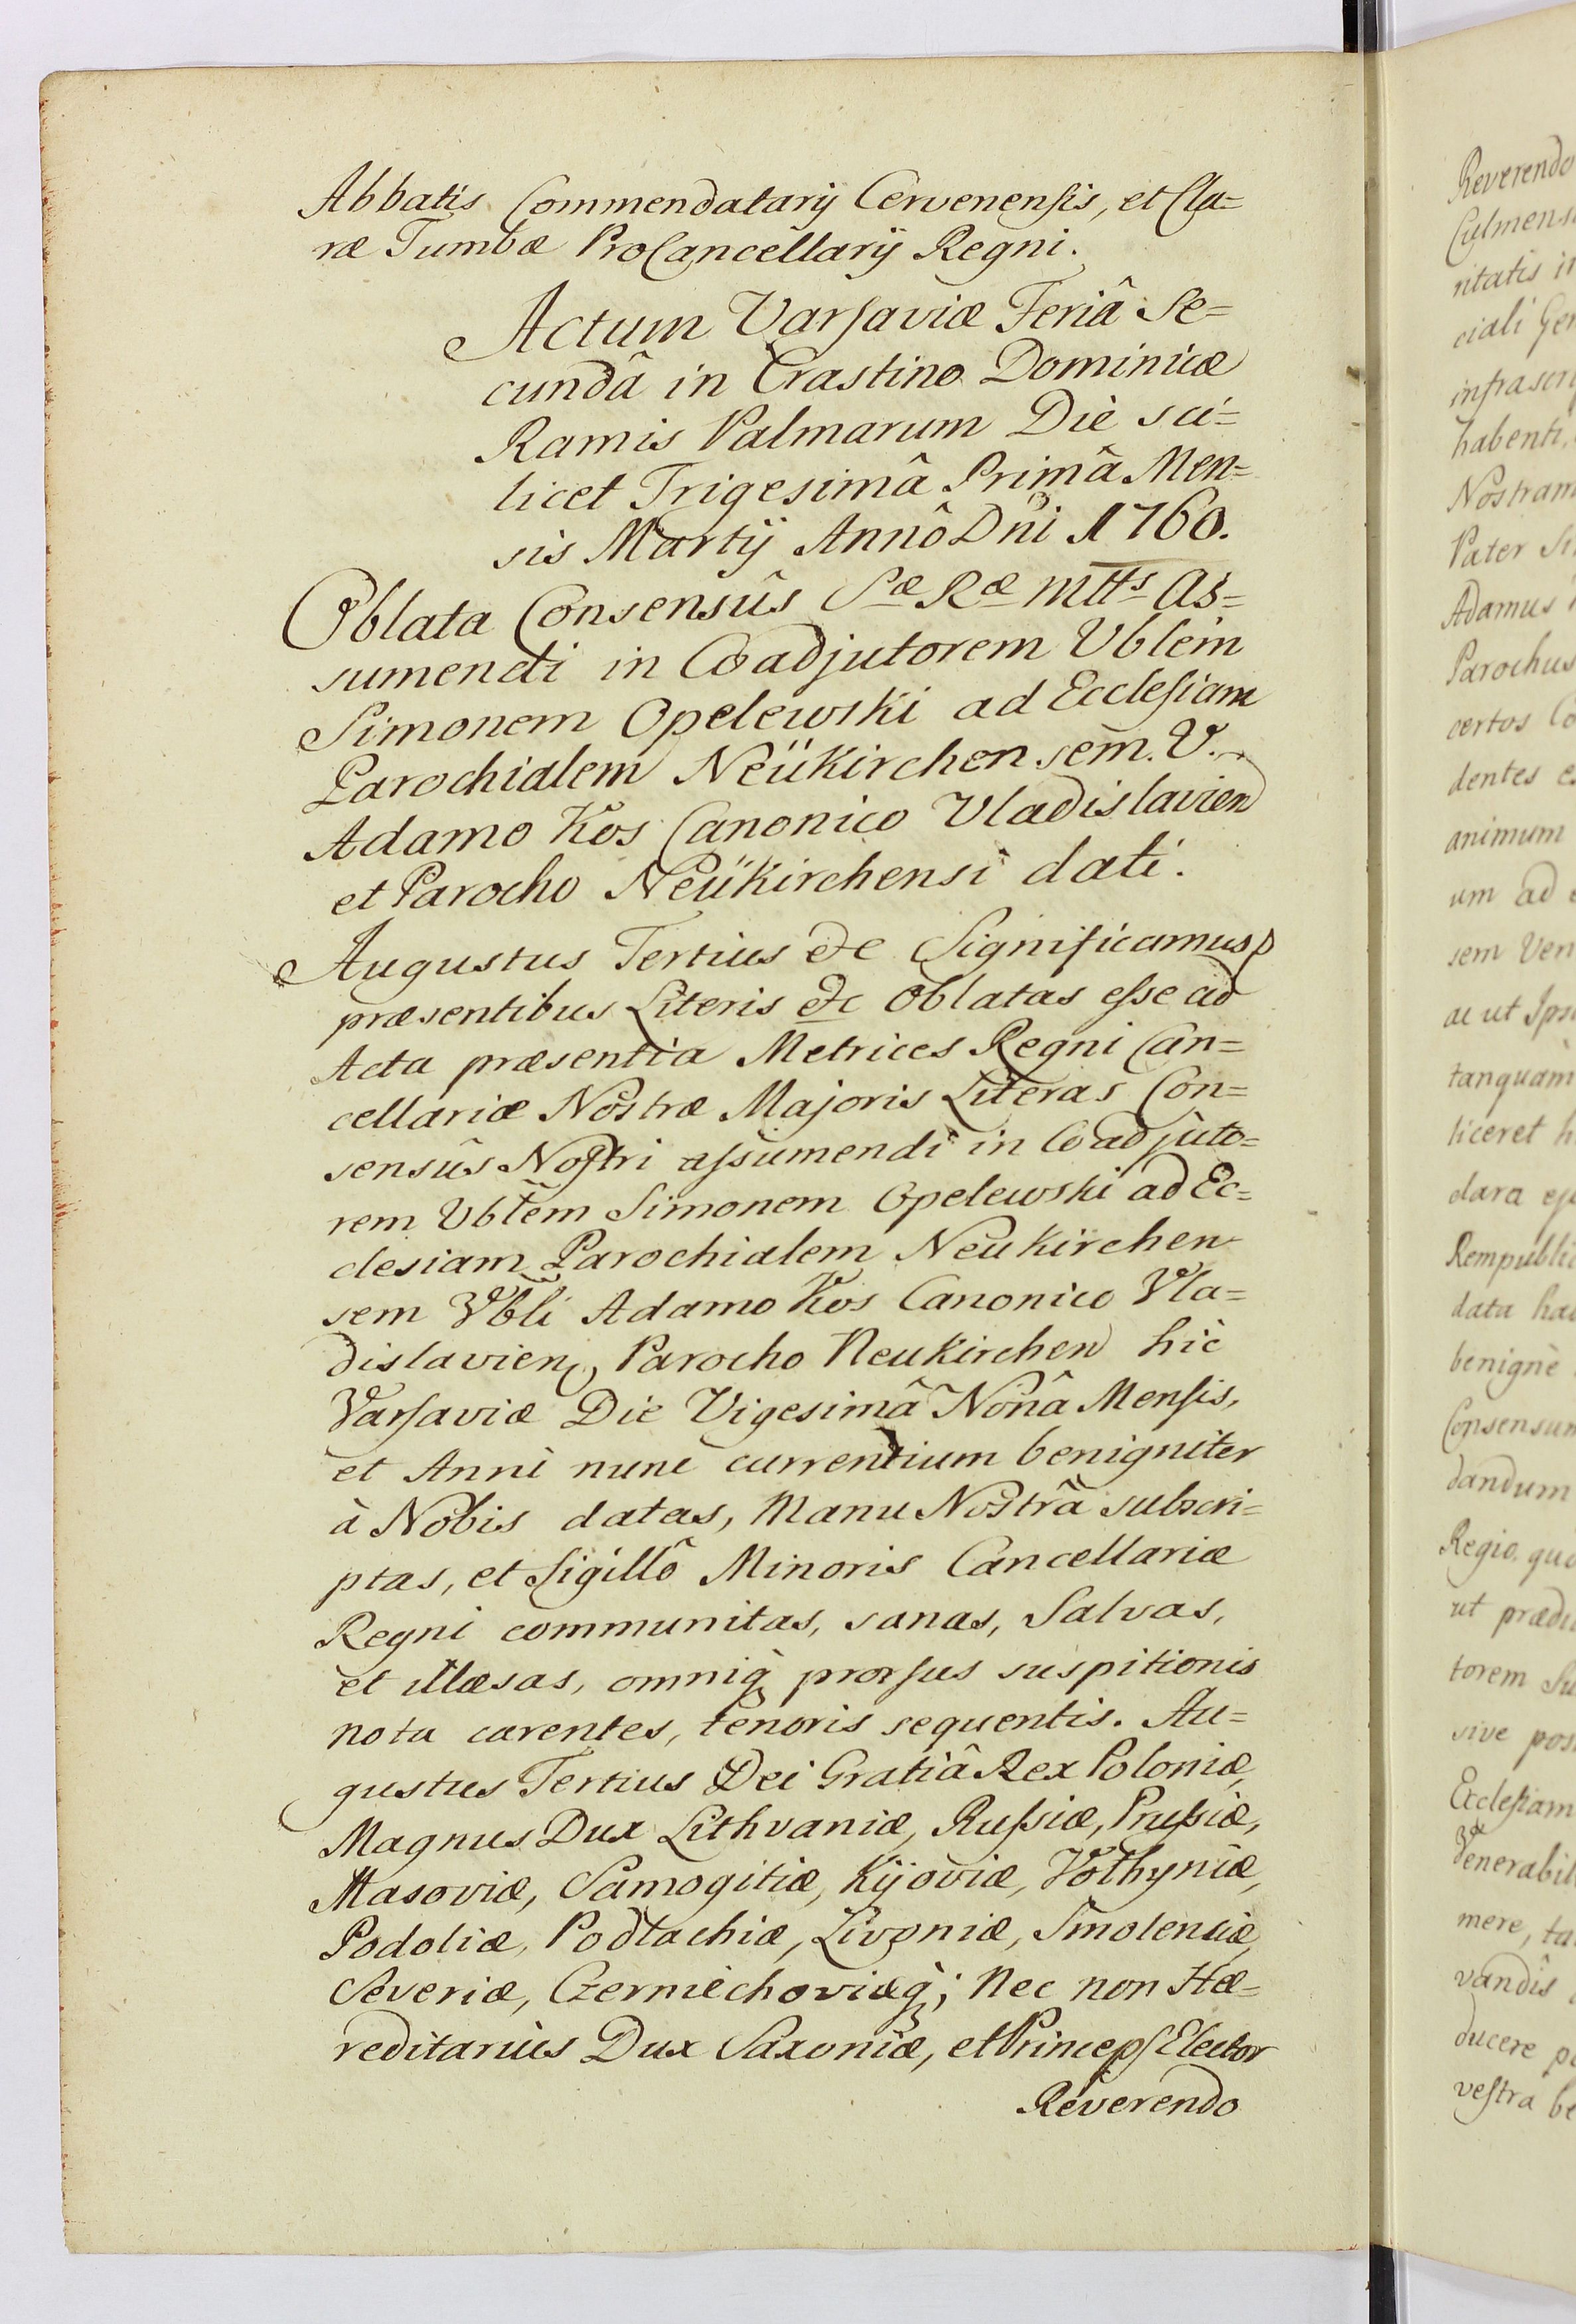 Abbatis Commendatarij Cervenensis, et Cla=
ræ Tumbæ ProCancellarij Regni.
Actum Varsaviæ Feriâ Se=
cundâ in Crastino Dominicæ
Ramis Palmarum Die sci=
licet Trigesimâ Primâ Men=
sis Martij Annô Dñi 1760.
Oblata Consensûs Sæ Ræ Mtts as=
sumendi in Coadjutorem Vblem
Simonem Opelewski ad Ecclesiam
Parochialem Neükirchensem. V.
Adamo Kos Canonico Vladislavien
et Parocho Neükirchensi dati.
Augustus Tertius &c Significamus
præsentibus Literis &c Oblatas esse ad
Acta præsentia Metrices Regni Can=
cellariæ Nostræ Majoris Literas Con=
sensûs Nostri assumendi in Coadjuto=
rem Vblem Simonem Opelewski ad Ec=
clesiam Parochialem Neukirchen
sem Vbli Adamo Kos Canonico Vla=
dislavien, Parocho Neukirchen hic
Varsaviæ Die Vigesimâ Nonâ Mensis,
et Anni nunc currentium benigniter
à Nobis datas, Manu Nostrâ subscri=
ptas, et Sigillô Minoris Cancellariæ
Regni communitas, sanas, Salvas,
et illæsas, omniq prorsus suspitionis
nota carentes, tenoris sequentis. Au=
gustus Tertius Dei Gratiâ Rex Poloniæ,
Magnus Dux Lithvaniæ, Russiæ, Prussiæ,
Masoviæ, Samogitiæ, Kijoviæ, Volhyniæ,
Podoliæ, Podlachiæ, Livoniæ, Smolensciæ,
Severiæ, Czerniechoviæq; Nec non Hæ=
reditarius Dux Saxoniæ, et Princeps Elector
Reverendo
Reverendo
Culmens
ritatis in
ciali Gen
infrascri
habenti,
Nostram
Pater
Adamus
Parochus
certos Co
dentes
animum
um ad
sem Ven
ac ut Ips
tanquàm
liceret
clara
Rempubli
data
benignè
Consensum
dandum
Regio.
ut prædi
torem
sive pos
Ecclesiam
Venerabil
mere, ta
vandis
ducere
vestra be